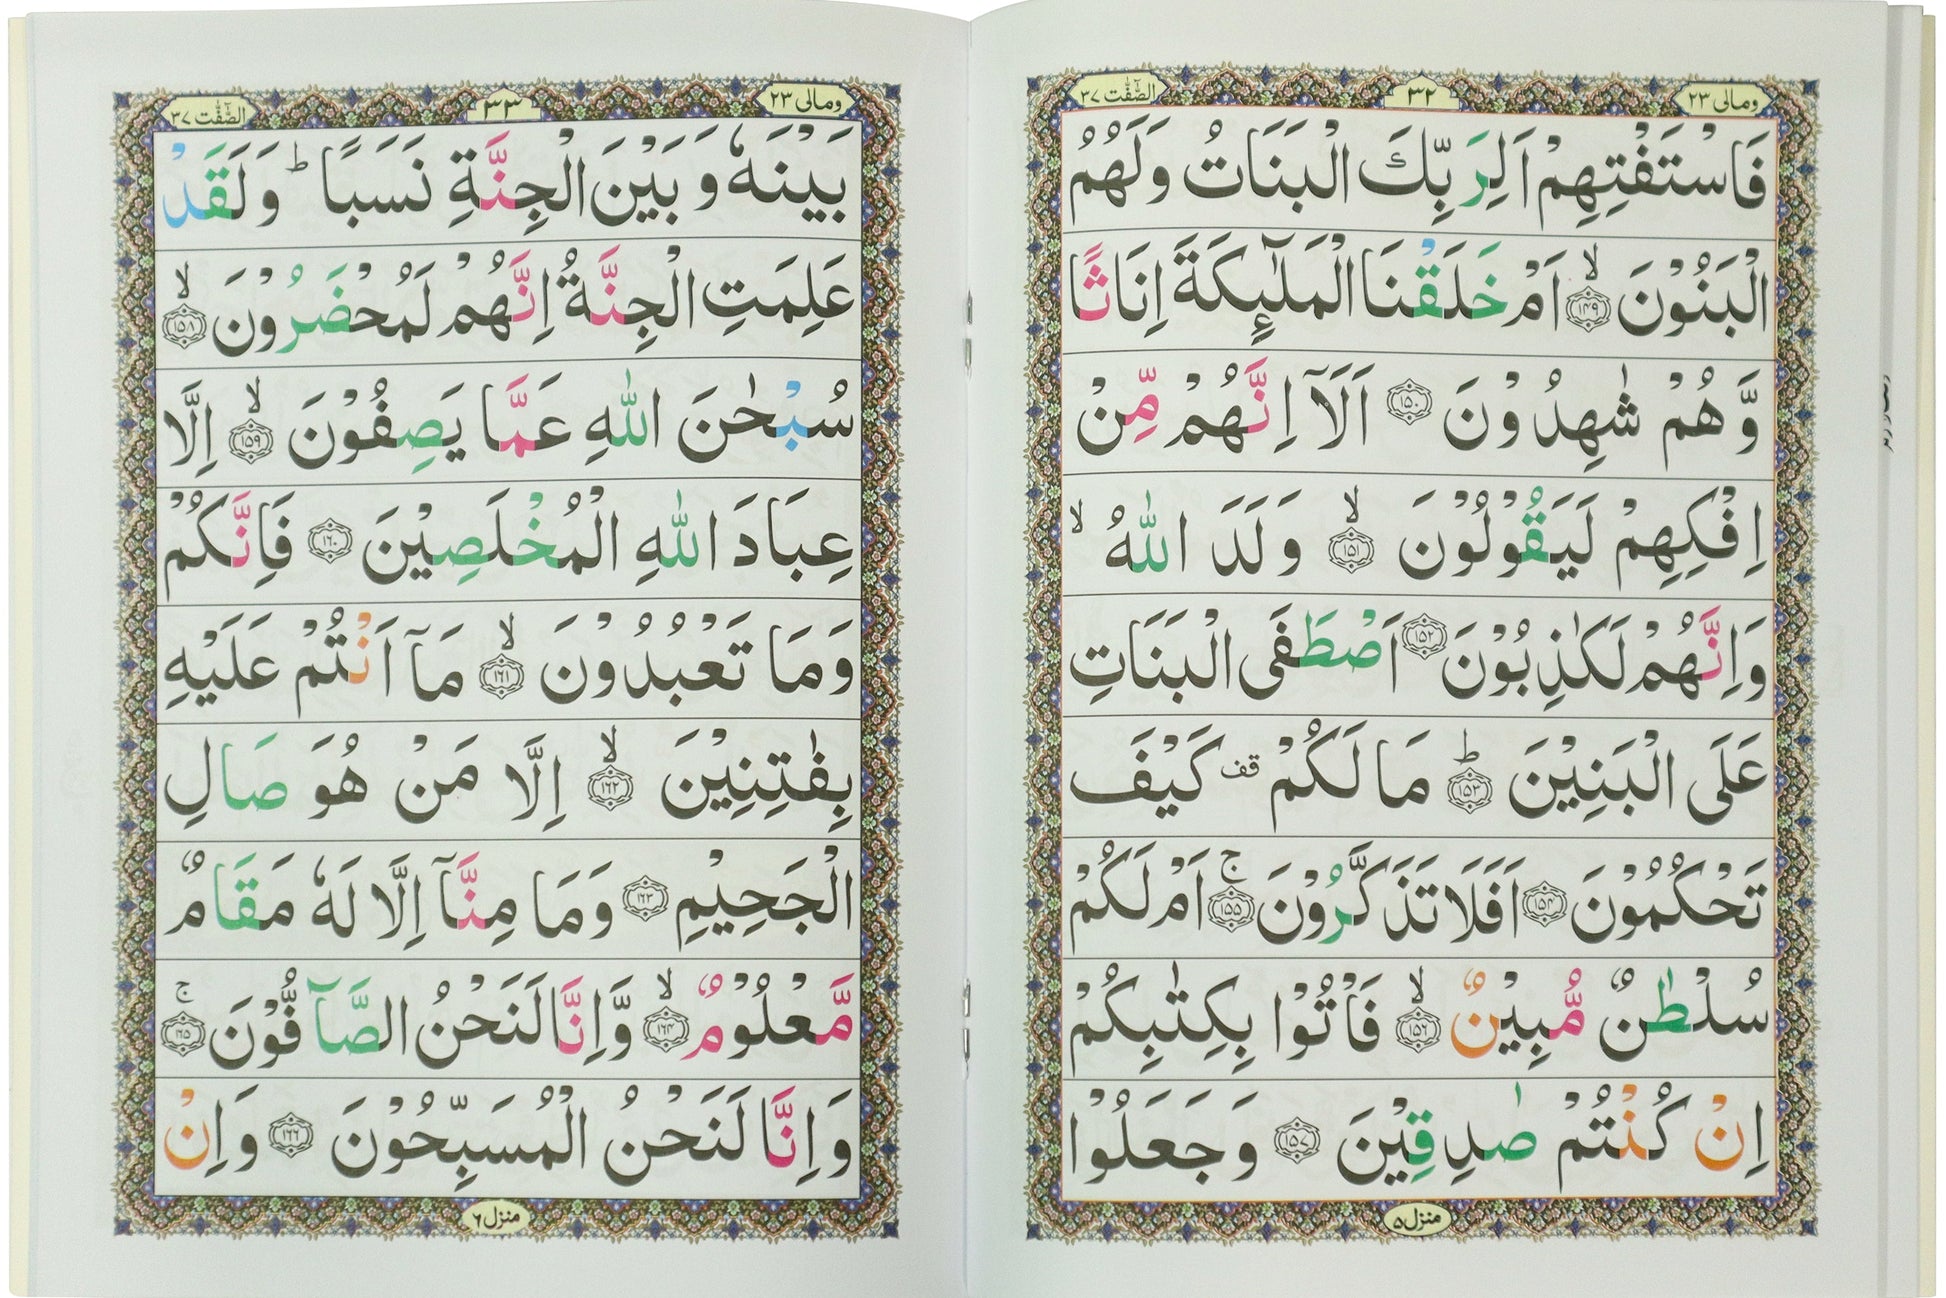 ومالی ٢٣
٣٢
الصّٰٓفّٰت ٣٧
فَاسْتَفْتِهِمْ اَلِرَبِّكَ الْبَنَاتُ وَلَهُمُ
الْبَنُوْنَ ۙ﴿۱۴۹﴾ اَمْ خَلَقْنَا الْمَلٰٓئِكَةَ اِنَاثًا
وَّ هُمْ شٰهِدُوْنَ ﴿۱۵۰﴾ اَلَاۤ اِنَّهُمْ مِّنْ
اِفْكِهِمْ لَيَقُوْلُوْنَ ۙ﴿۱۵۱﴾ وَلَدَ اللّٰهُ ۙ
وَاِنَّهُمْ لَكٰذِبُوْنَ ﴿۱۵۲﴾ اَصْطَفَى الْبَنَاتِ
عَلَى الْبَنِيْنَ ؕ﴿۱۵۳﴾ مَا لَكُمْ قف كَيْفَ
تَحْكُمُوْنَ ﴿۱۵۴﴾ اَفَلَا تَذَكَّرُوْنَ ۚ﴿۱۵۵﴾ اَمْ لَكُمْ
سُلْطٰنٌ مُّبِيْنٌ ۙ﴿۱۵۶﴾ فَاْتُوْا بِكِتٰبِكُمْ
اِنْ كُنْتُمْ صٰدِقِيْنَ ﴿۱۵۷﴾ وَجَعَلُوْا
منزل ۵
ومالی ٢٣
٣٣
الصّٰٓفّٰت ٣٧
بَيْنَهٗ وَ بَيْنَ الْجِنَّةِ نَسَبًا ؕ وَلَقَدْ
عَلِمَتِ الْجِنَّةُ اِنَّهُمْ لَمُحْضَرُوْنَ ۙ﴿۱۵۸﴾
سُبْحٰنَ اللّٰهِ عَمَّا يَصِفُوْنَ ۙ﴿۱۵۹﴾ اِلَّا
عِبَادَ اللّٰهِ الْمُخْلَصِيْنَ ﴿۱۶۰﴾ فَاِنَّكُمْ
وَمَا تَعْبُدُوْنَ ۙ﴿۱۶۱﴾ مَاۤ اَنْتُمْ عَلَيْهِ
بِفٰتِنِيْنَ ۙ﴿۱۶۲﴾ اِلَّا مَنْ هُوَ صَالِ
الْجَحِيْمِ ﴿۱۶۳﴾ وَمَا مِنَّاۤ اِلَّا لَهٗ مَقَامٌ
مَّعْلُوْمٌ ۙ﴿۱۶۴﴾ وَّاِنَّا لَنَحْنُ الصَّآفُّوْنَ ۚ﴿۱۶۵﴾
وَاِنَّا لَنَحْنُ الْمُسَبِّحُوْنَ ﴿۱۶۶﴾ وَاِنْ
منزل ۶